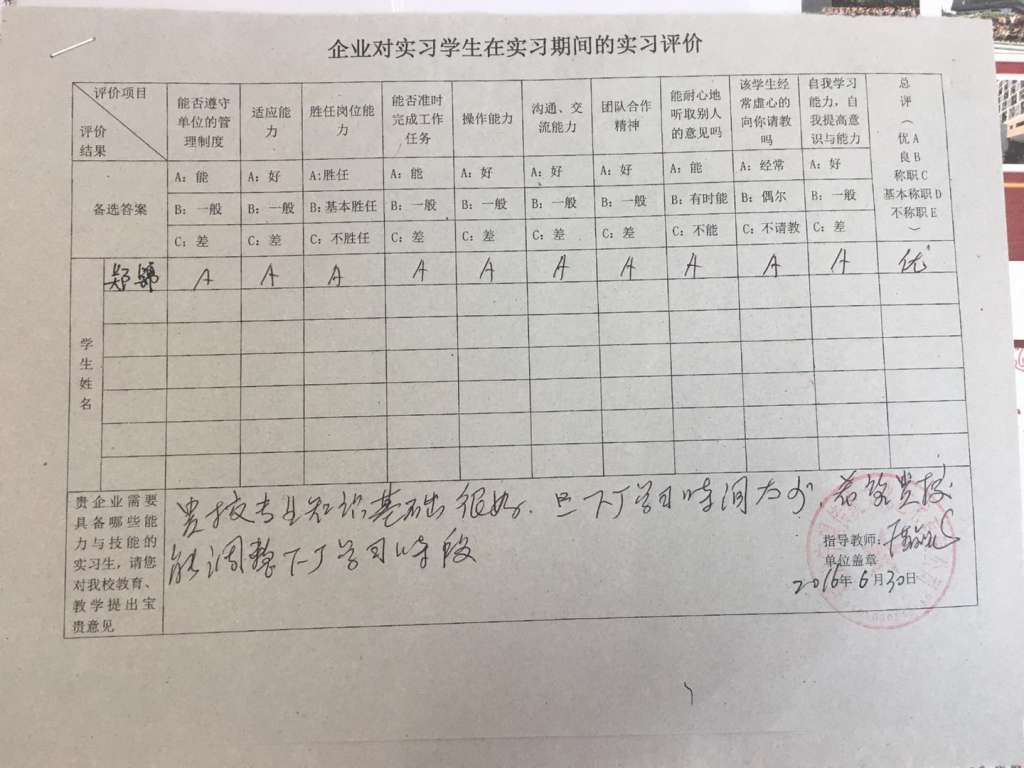 企业对实习学生在实习期间的实习评价
评价项目
评价
结果
能否遵守
单位的管
理制度
适应能
力
胜任岗位能
力
能否准时
完成工作
任务
操作能力
沟通、交
流能力
团队合作
精神
能耐心地
听取别人
的意见吗
该学生经
常虚心的
向你请教
吗
自我学习
能力，自
我提高意
识与能力
总
评
（
优 A
良 B
称职 C
基本称职 D
不称职 E
）
备选答案
A：能 A：好 A:胜任 A：能 A：好 A：好 A：好 A：能 A：经常 A：好
B：一般 B：一般 B：基本胜任 B：一般 B：一般 B：一般 B：一般 B：有时能 B：偶尔 B：一般
C：差 C：差 C：不胜任 C：差 C：差 C：差 C：差 C：不能 C：不请教 C：差
学生姓名
郑 A A A A A A A A A A 优
贵企业需要
具备哪些能
力与技能的
实习生，请您
对我校教育、
教学提出宝
贵意见
贵校专业知识基础很好，但下厂学习时间太少，希望贵校
能调整下厂学习时段
指导教师：
单位盖章
2016年 6月30日